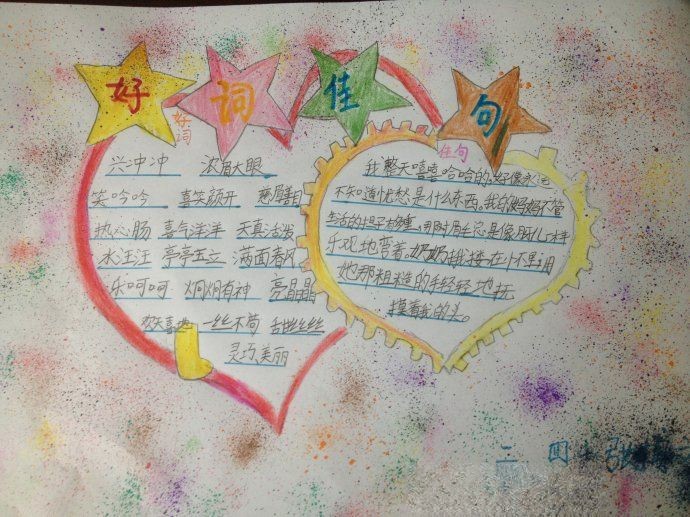 好词佳句
好词
兴冲冲 浓眉大眼
笑吟吟 喜笑颜开 慈眉善目
热心肠 喜气洋洋 天真活泼
水汪汪 亭亭玉立 满面春风
乐呵呵 炯炯有神 亮晶晶
欢天喜地 一丝不苟 甜丝丝
灵巧美丽
佳句
我整天嘻嘻哈哈的,好像永远
不知道忧愁是什么东西。我的妈妈不管
生活的担子多重,用眉毛总是像月儿一样
乐观地弯着。奶奶我搂在怀里,用
她那粗糙的手轻轻地抚
摸着我的头。
二 四